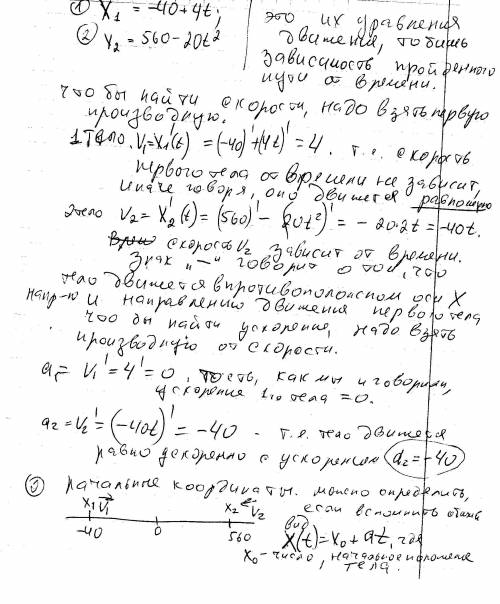 ① x₁ = -40+4t;
② x₂ = 560-20t²
это их уравнения
движения, то бишь
зависимость пройденного
пути от времени.
Что бы найти скорости, надо взять первую
производную.
1 тело. V₁=x₁'(t) = (-40)'+(4t)'=4. т.е. скорость
первого тела от времени не зависит,
иначе говоря, оно движется равномерно
2 тело V₂= x₂'(t)=(560)'-(20t²)'= -20·2t=-40t.
скорость V₂ зависит от времени.
Знак "—" говорит о том, что
тело движется в противоположном оси X
напр-ю и направлению движения первого тела
Что бы найти ускорение, надо взять
производную от скорости.
a₁= V₁'=4'=0, то есть, как мы и говорили,
ускорение 1го тела =0.
a₂=V₂'=(-40t)'=-40 - т.е. тело движется
равно ускоренно с ускорением a₂=-40
③ Начальные координаты можно определить,
если вспомнить общий
вид
x₁ V₁ x₂ V₂
-40 0 560
X(t)=x₀+at, где
x₀-число, начальное положение
тела.